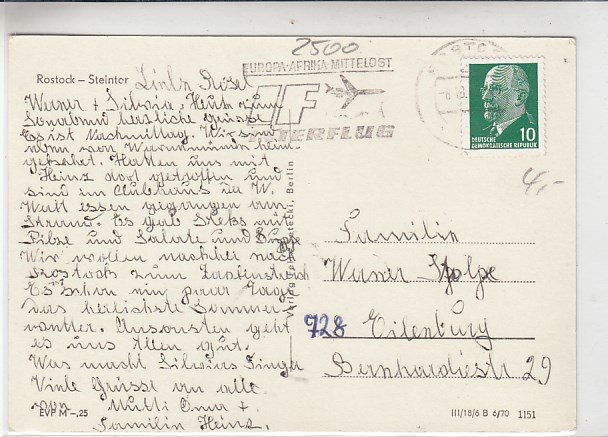 2500
Rostock – Steintor
Liebe Rosel
Werner + Silvia, Heute zum
Sonnabend herzliche Grüsse
Es ist Nachmittag. Wir sind
von Warnemünde heim
gekehrt. Hatten uns mit
Heinz dort getroffen und
sind im Clubhaus in W.
essen gegangen am
Strand. Es gab Steks mit
Pilze und Salate und Suppe
Wir wollen nachher nach
Rostock zum Zapfenstreich
Es schon ein paar Tage
das herlichste Sommer
wetter. Ansonsten geht
es uns Allen gut.
Was macht Silvias Finger
Viele Grüsse an alle
von Mutti Oma +
Familie Heinz.
EVP M –,25
EUROPA·AFRIKA·MITTELOST
IF
INTERFLUG
10
DEUTSCHE
DEMOKRATISCHE REPUBLIK
4,-
Berlin
Familie
Werner
728 Eilenburg
Bernhardiestr 29
III/18/6 B 6/70 1151